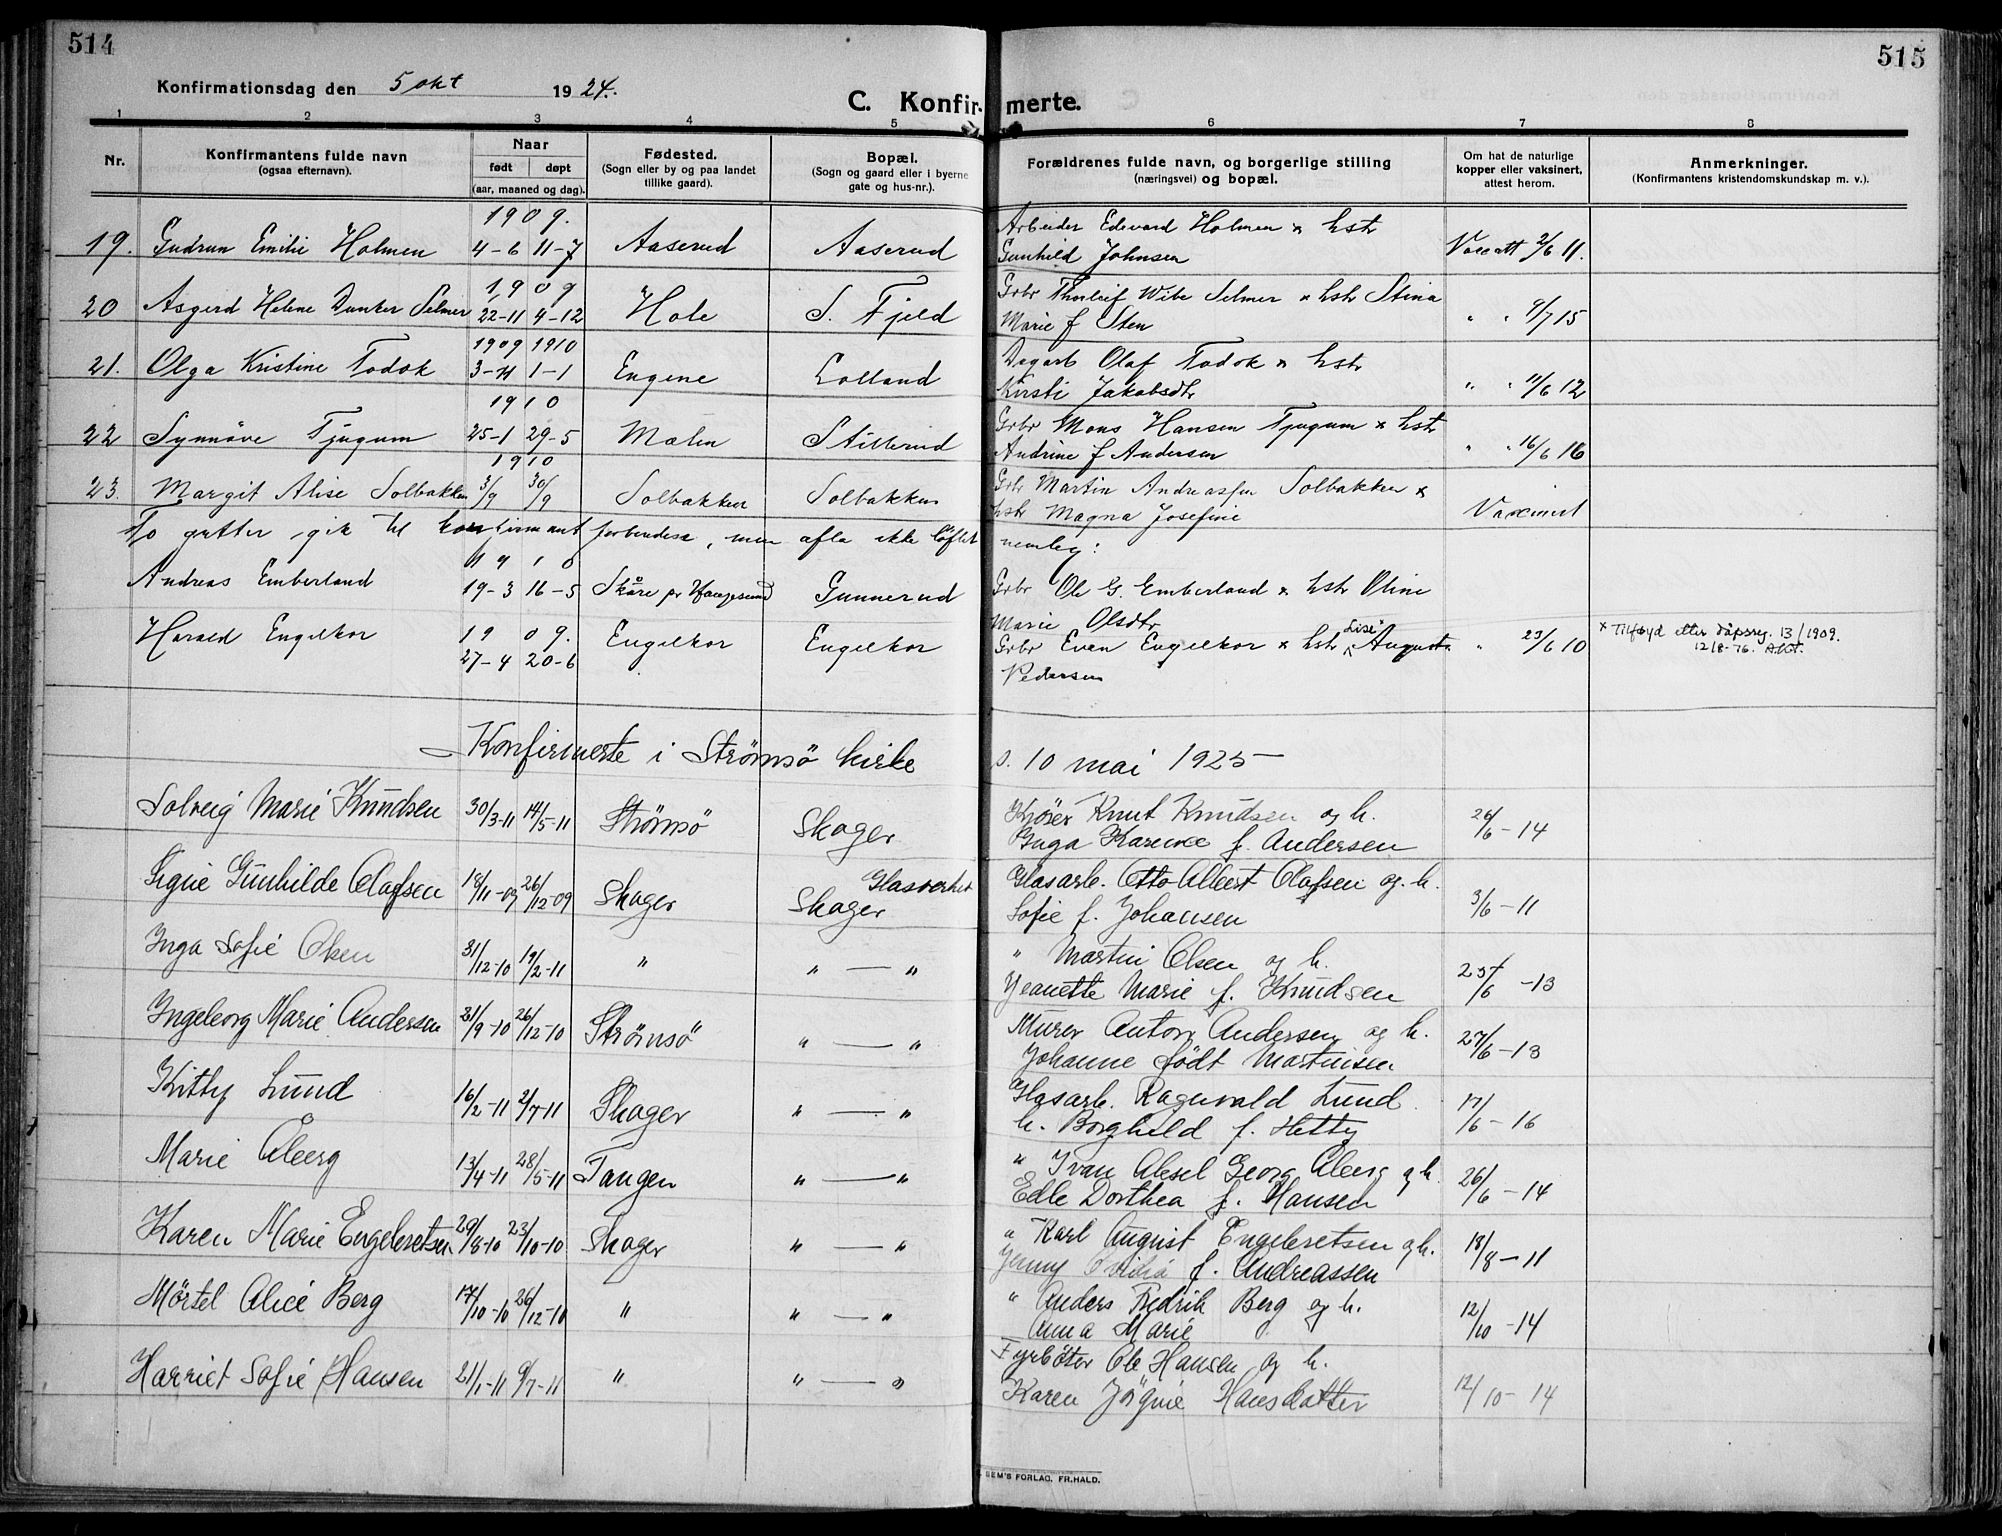 514
515
Konfirmationsdag den 5 okt 1924.
C. Konfirmerte.
1 2 3 4 5 6 7 8
Nr.
Konfirmantens fulde navn (ogsaa efternavn).
Naar født døpt (aar, maaned og dag).
Fødested. (Sogn eller by og paa landet tillike gaard).
Bopæl. (Sogn og gaard eller i byerne gate og hus-nr.).
Forældrenes fulde navn, og borgerlige stilling (næringsvei) og bopæl.
Om hat de naturlige kopper eller vaksinert, attest herom.
Anmerkninger. (Konfirmantens kristendomskundskap m. v.).
1909. Arbeider Edevard Holmen & hstr
19. Gudrun Emilie Holmen 4-6 11-7 Aaserud Aaserud Gunhild Johnsen Vacc att 2/6 11.
1909 Grbr Thorleif Wibe Selmer & hstr Stina
20 Asgerd Helene Dunker Selmer 22-11 4-12 Hole S. Fjeld Marie f Sten " " 9/7 15
1909 1910 Dagarb Olaf Todok & hstr
21. Olga Kristine Todok 3-11 1-1 Eugene Lolland Kirsti Jakobsdtr " " 11/6 12
1910 Grbr Mons Hansen Tjugum & hstr
22 Synnöve Tjugum 25-1 29-5 Mælen Stillerud Andrine f Andersen " " 16/6 16
1910 Grbr Martin Andreassen Solbakken &
23. Margit Alise Solbakken 3/9 30/9 Solbakken Solbakken hstr Magna Josefine Vaxinert
To gutter gik til konfirmantforberedese, men afla ikke löftet nemleg:
1910
Andreas Emberland 19-3 16-5 Skåre pr Haugesund Gunnerud Grbr Ole G. Emberland & hstr Oline
Marie Olsdtr
Harald Engelkor 1909. 27-4 20-6 Engelkor Engelkor Grbr Evan Engelkor & hstr "Lise" Augusta " 23/6 10 x Tilføyd etter dåpsreg. 13/1909.
12/8-76.
Pedersen
Konfirmerte i Strømsö kirke s. 10 mai 1925
Solveig Marie Knudsen 30/3-11 14/5-11 Strömsö Skoger Kjörer Knut Knudsen og h.
Inga Karine f. Andersen 26/6-14
Signe Gunhilde Olafsen 18/11-09 26/12-09 Skoger Glasverket Skoger Glasarb. Otto Albert Olafsen og h.
Sofie f. Johansen 3/6-11
Inga Sofie Olsen 31/12-10 19/2-11 " " — " " Martin Olsen og h.
Jeanette Marie f. Knudsen 25/6-13
Ingeborg Marie Andersen 21/9-10 26/12-10 Strömsö " — " Murer Anton Andersen og h.
Johanne født Martinsen 27/6-13
Kitty Lund 16/2-11 2/7-11 Skoger " — " Glasarb. Ragnvald Lund
h. Borghild f. Hetty 17/6-16
Marie Åberg 13/4-11 28/5-11 Tangen " — " " Ivan Aksel Georg Åberg og h.
Edle Dorthea f. Hansen 26/6-14
Karen Marie Engebretsen 29/8-10 23/10-10 Skoger " — " " Karl August Engebretsen og h.
Jenny Ovidia f. Andreassen 18/8-11
Mørtel Alice Berg 17/10-10 26/12-10 " " — " " Anders Fredrik Berg og h.
Anna Marie 12/10-14
Harriet Sofie Hansen 21/1-11 9/7-11 " " — " Fyrbøter Ole Hansen og h.
Karen Hansdatter 12/10-14
SEM'S FORLAG. FR.HALD.